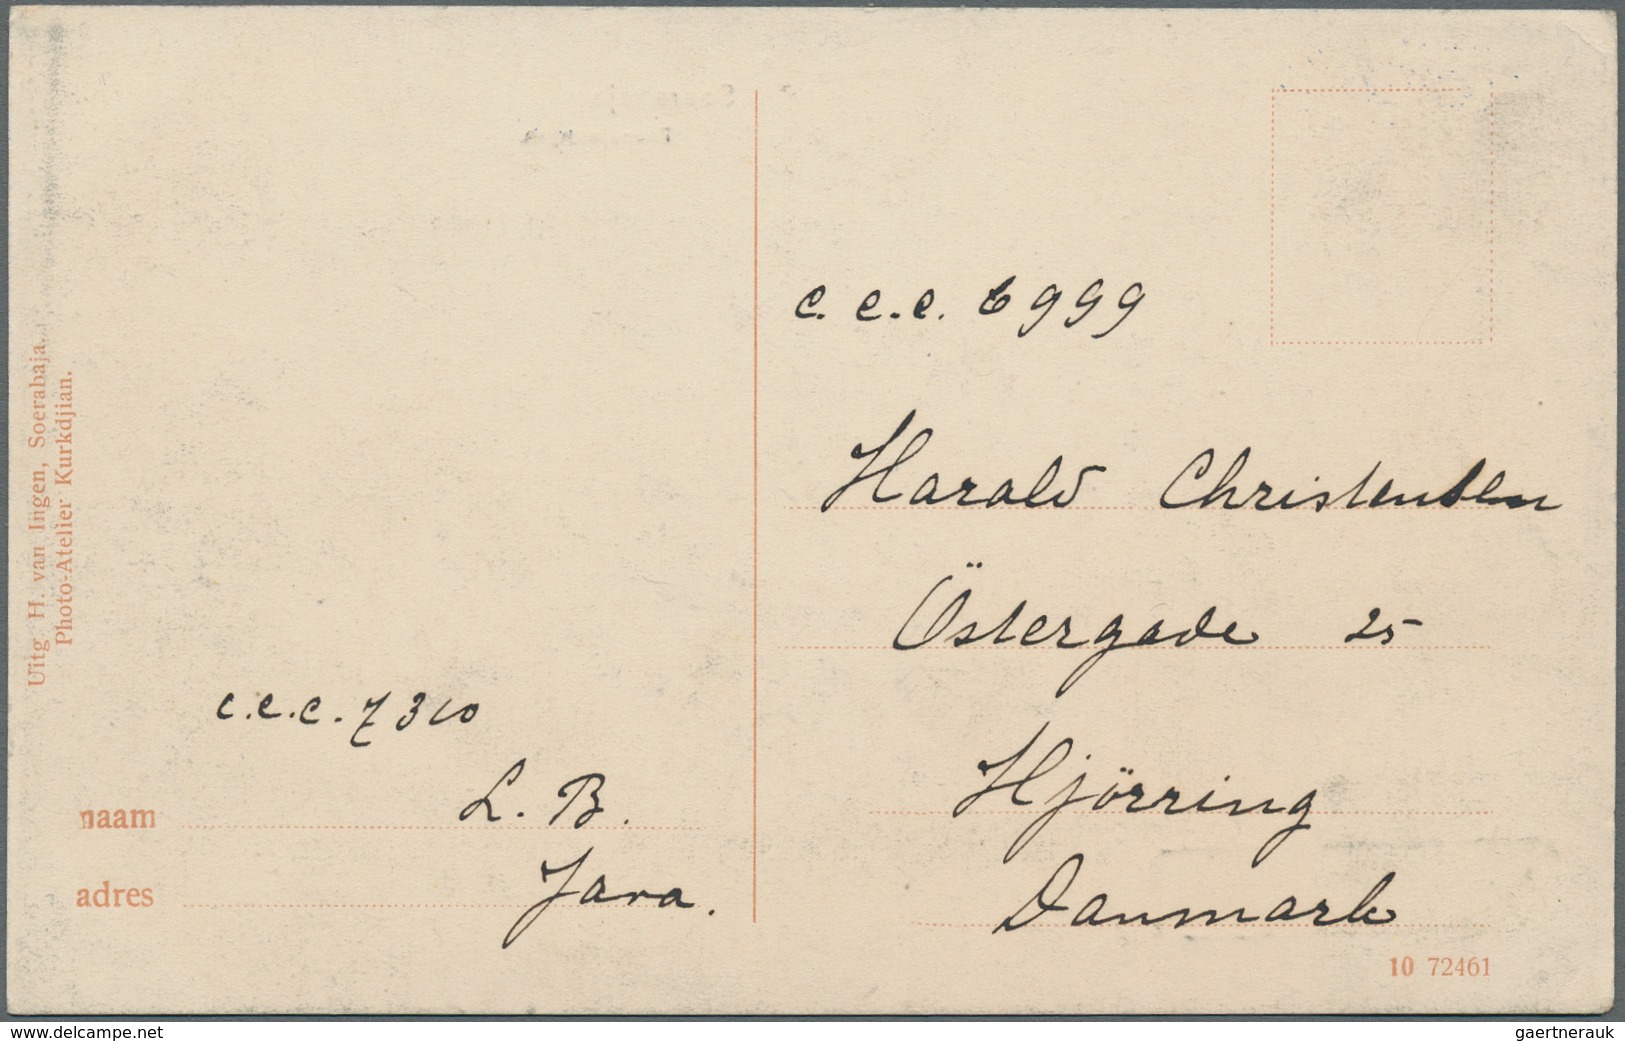 Uitg H. van Ingen, Soerabaja.
Photo-Atelier Kurkdjian.
c.c.c. 7310
naam L. B.
adres Java.
c. c.c. 6999
Harald Christensen
Östergade 25
Hjörring
Danmark
10 72461
www.delcampe.net
gaertnerauk